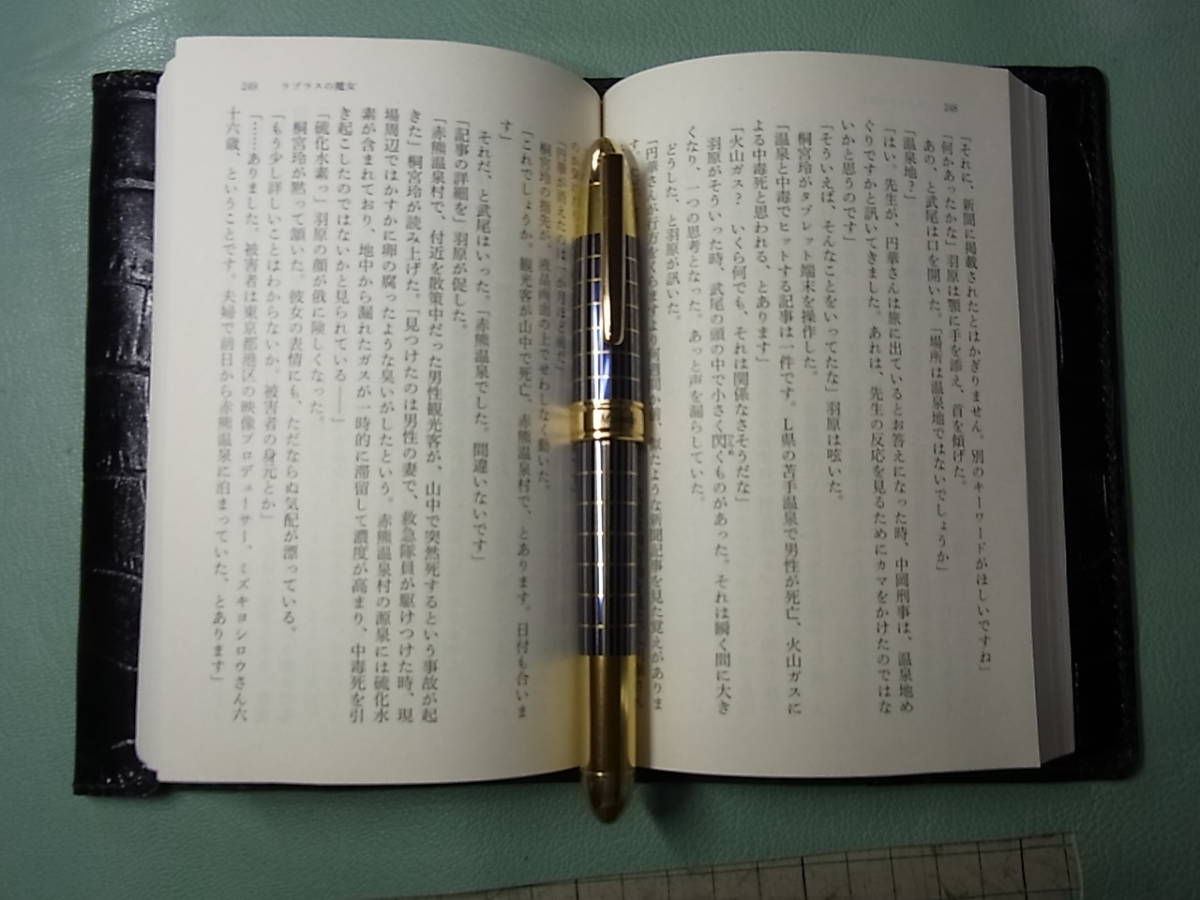 248
「それに、新聞に掲載されたとはかぎりません。別のキーワードがほしいですね」
「何かあったかな」羽原は顎に手を添え、首を傾げた。
あの、と武尾は口を開いた。「場所は温泉地ではないでしょうか」
「温泉地?」
「はい。先生が、円華さんは旅に出ているとお答えになった時、中岡刑事は、温泉地め
ぐりですかと訊いてきました。あれは、先生の反応を見るためにカマをかけたのではな
いかと思うのです」
「そういえば、そんなことをいってたな」羽原は呟いた。
桐宮玲がタブレット端末を操作した。
「温泉と中毒でヒットする記事は一件です。L県の苫手温泉で男性が死亡、火山ガスに
よる中毒死と思われる、とあります」
「火山ガス? いくら何でも、それは関係なさそうだな」
羽原がそういった時、武尾の頭の中で小さく閃くものがあった。それは瞬く間に大き
くなり、一つの思考となった。あっと声を漏らしていた。
どうした、と羽原が訊いた。
「円華さんが行方をくらますより何週間か前、似たような新聞記事を見た覚えがありま
す
249 ラプラスの魔女
桐宮玲の指先が、液晶画面の上でせわしなく動いた。
「これでしょうか。観光客が山中で死亡、赤熊温泉村で、とあります。日付も合いま
す」
それだ、と武尾はいった。「赤熊温泉でした。間違いないです」
「記事の詳細を」羽原が促した。
「赤熊温泉村で、付近を散策中だった男性観光客が、山中で突然死するという事故が起
きた」桐宮玲が読み上げた。「見つけたのは男性の妻で、救急隊員が駆けつけた時、現
場周辺ではかすかに卵の腐ったような臭いがしたという。赤熊温泉村の源泉には硫化水
素が含まれており、地中から漏れたガスが一時的に滞留して濃度が高まり、中毒死を引
き起こしたのではないかと見られている――」
「硫化水素っ」羽原の顔が俄に険しくなった。
桐宮玲が黙って頷いた。彼女の表情にも、ただならぬ気配が漂っている。
「もう少し詳しいことはわからないか。被害者の身元とか」
「……ありました。被害者は東京都港区の映像プロデューサー、ミズキヨシロウさん六
十六歳、ということです。夫婦で前日から赤熊温泉に泊まっていた、とあります」